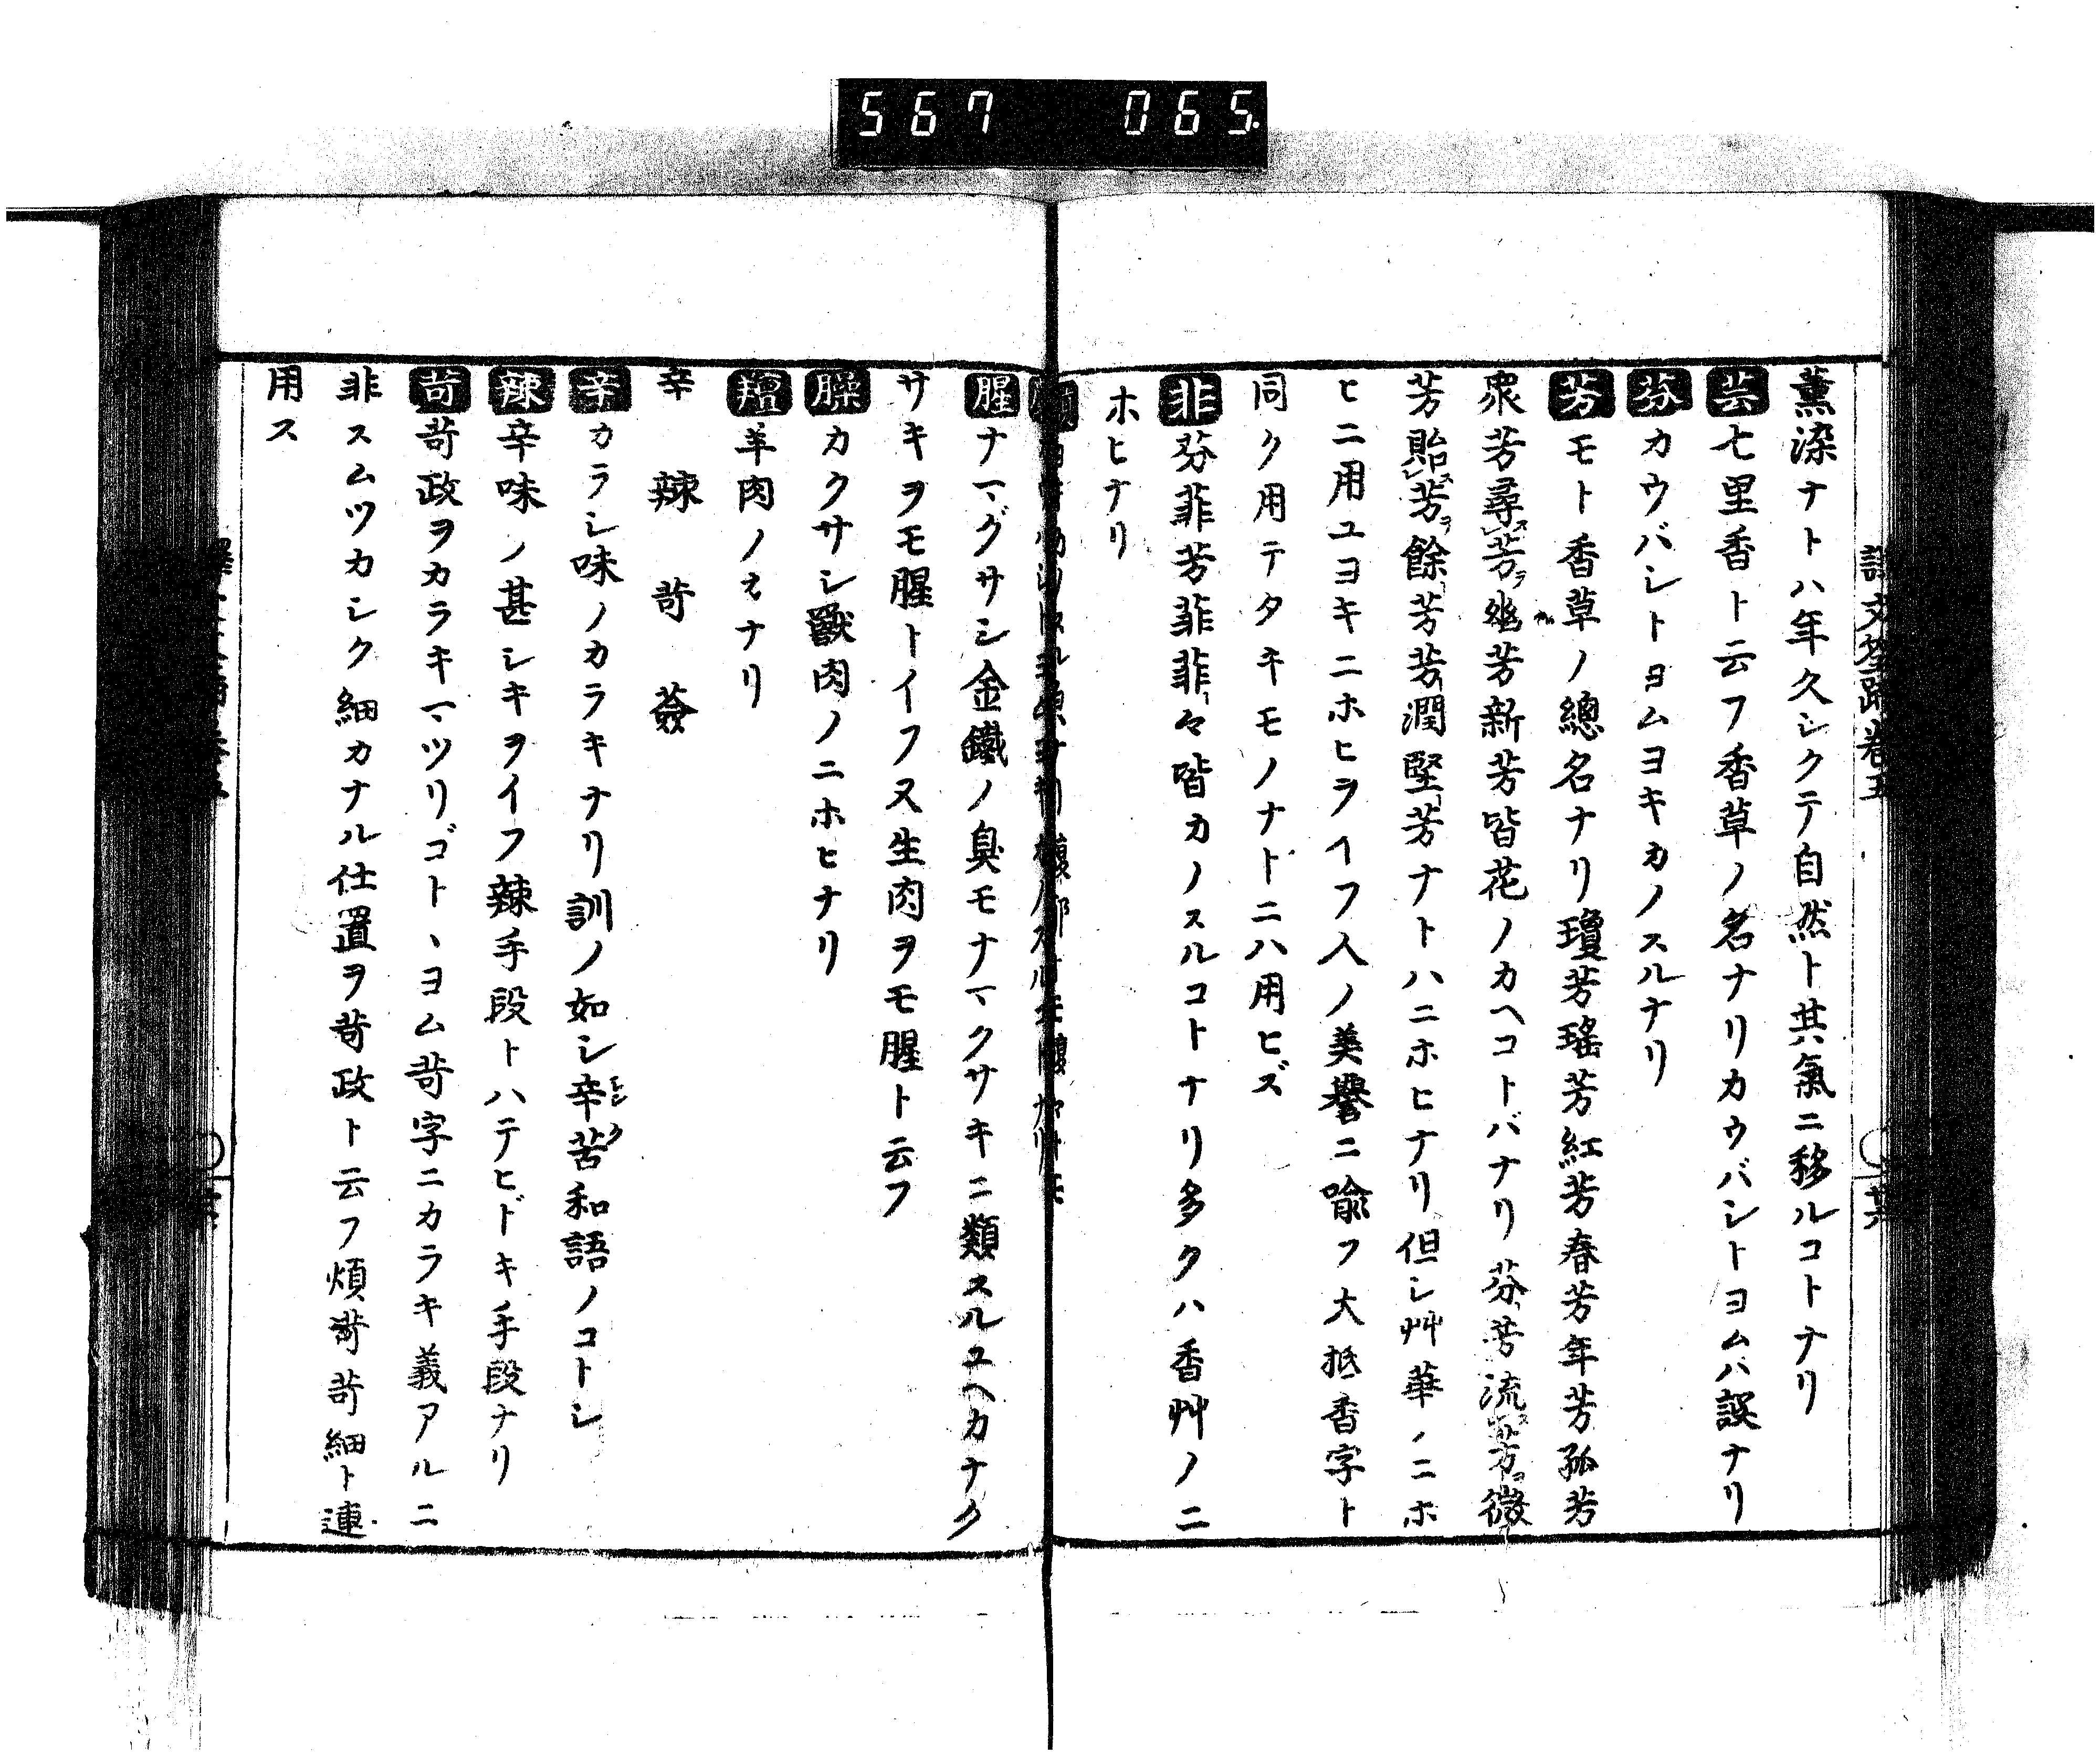 567 065.
譯文筌蹄卷五
薫染ナトハ年久シクテ自然ト其氣ニ移ルコトナリ
芸七里香ト云フ香草ノ名ナリカウバシトヨムハ誤ナリ
芬カウバシトヨムヨキカノスルナリ
芳モト香草ノ總名ナリ瓊芳瑤芳紅芳春芳年芳孤芳
衆芳尋芳幽芳新芳皆花ノカヘコトバナリ芬芳流芳微
芳貽芳餘芳芳潤堅芳ナトハニホヒナリ但シ艸華ノニホ
ヒニ用ユヨキニホヒヲイフ人ノ美譽ニ喩フ大抵香字ト
同ク用テタキモノナトニハ用ヒズ
菲芬菲芳菲菲々皆カノスルコトナリ多クハ香艸ノニ
ホヒナリ
腥ナマグサシ金鐵ノ臭モナマクサキニ類スルユヘカナク
サキヲモ腥トイフ又生肉ヲモ腥ト云フ
臊カクサシ獸肉ノニホヒナリ
羶羊肉ノカナリ
辛 辣 苛 薟
辛カラシ味ノカラキナリ訓ノ如シ辛苦和語ノコトシ
辣辛味ノ甚シキヲイフ辣手段トハテヒドキ手段ナリ
苛苛政ヲカラキマツリゴトヽヨム苛字ニカラキ義アルニ
非スムツカシク細カナル仕置ヲ苛政ト云フ煩苛苛細ト連
用ス